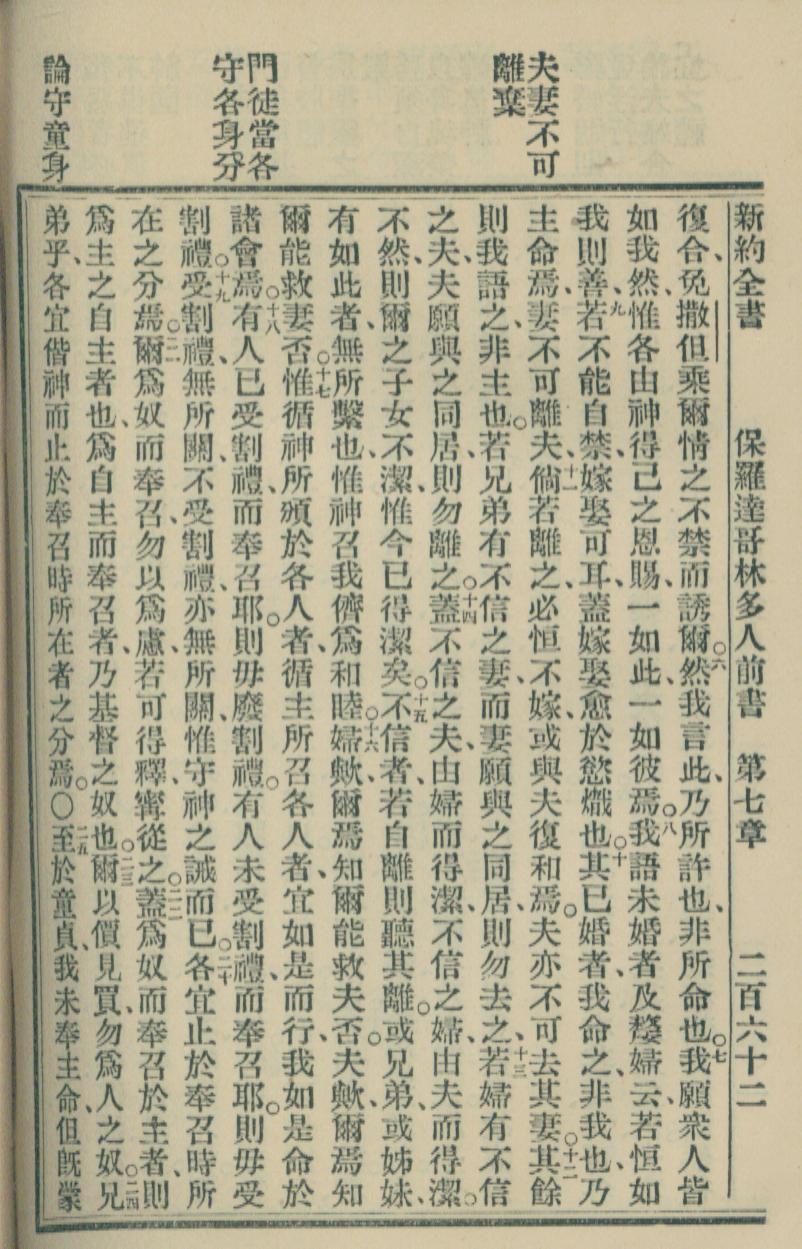 新約全書　保羅達哥林多人前書　第七章　二百六十二
夫妻不可
離棄
門徒當各
守各身分
論守童身
復合、免撒但乘爾情之不禁而誘爾。六然我言此、乃所許也、非所命也。七我願衆人皆
如我然、惟各由神得己之恩賜、一如此一如彼焉。八我語未婚者及嫠婦云、若恒如
我則善、九若不能自禁、嫁娶可耳、蓋嫁娶愈於慾熾也。十其已婚者、我命之、非我也、乃
主命焉、妻不可離夫、十一倘若離之、必恒不嫁、或與夫復和焉。夫亦不可去其妻。十二其餘
則我語之、非主也。若兄弟有不信之妻、而妻願與之同居、則勿去之、十三若婦有不信
之夫、夫願與之同居、則勿離之。十四蓋不信之夫、由婦而得潔、不信之婦、由夫而得潔。
不然、則爾之子女不潔、惟今已得潔矣。十五不信者、若自離則聽其離。或兄弟、或姊妹、
有如此者、無所繫也、惟神召我儕爲和睦。十六婦歟、爾焉知爾能救夫否。夫歟、爾焉知
爾能救妻否。十七惟循神所頒於各人者、循主所召各人者、宜如是而行、我如是命於
諸會焉。十八有人已受割禮、而奉召耶。則毋廢割禮。有人未受割禮、而奉召耶。則毋受
割禮。十九受割禮、無所關、不受割禮、亦無所關、惟守神之誡而已。二十各宜止於奉召時所
在之分焉。二一爾爲奴而奉召、勿以爲慮、若可得釋、寗從之。二二蓋爲奴而奉召於主者、則
爲主之自主者也、爲自主而奉召者、乃基督之奴也。二三爾以價見買、勿爲人之奴。二四兄
弟乎、各宜偕神而止於奉召時所在者之分焉。〇二五至於童貞、我未奉主命、但旣蒙